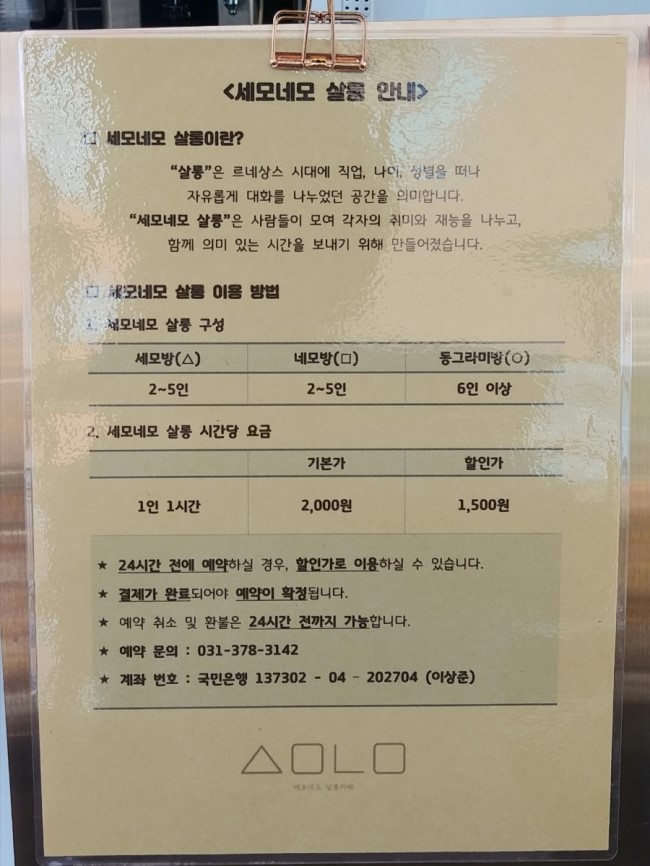 <세모네모 살롱 안내>
□ 세모네모 살롱이란?
“살롱”은 르네상스 시대에 직업, 나이, 성별을 떠나
자유롭게 대화를 나누었던 공간을 의미합니다.
“세모네모 살롱”은 사람들이 모여 각자의 취미와 재능을 나누고,
함께 의미 있는 시간을 보내기 위해 만들어졌습니다.
□ 세모네모 살롱 이용 방법
1. 세모네모 살롱 구성
세모방(△) 네모방(□) 동그라미방(○)
2~5인 2~5인 6인 이상
2. 세모네모 살롱 시간당 요금
기본가 할인가
1인 1시간 2,000원 1,500원
★ 24시간 전에 예약하실 경우, 할인가로 이용하실 수 있습니다.
★ 결제가 완료되어야 예약이 확정됩니다.
★ 예약 취소 및 환불은 24시간 전까지 가능합니다.
★ 예약 문의 : 031-378-3142
★ 계좌 번호 : 국민은행 137302 - 04 - 202704 (이상준)
△□L□
세모네모 살롱카페